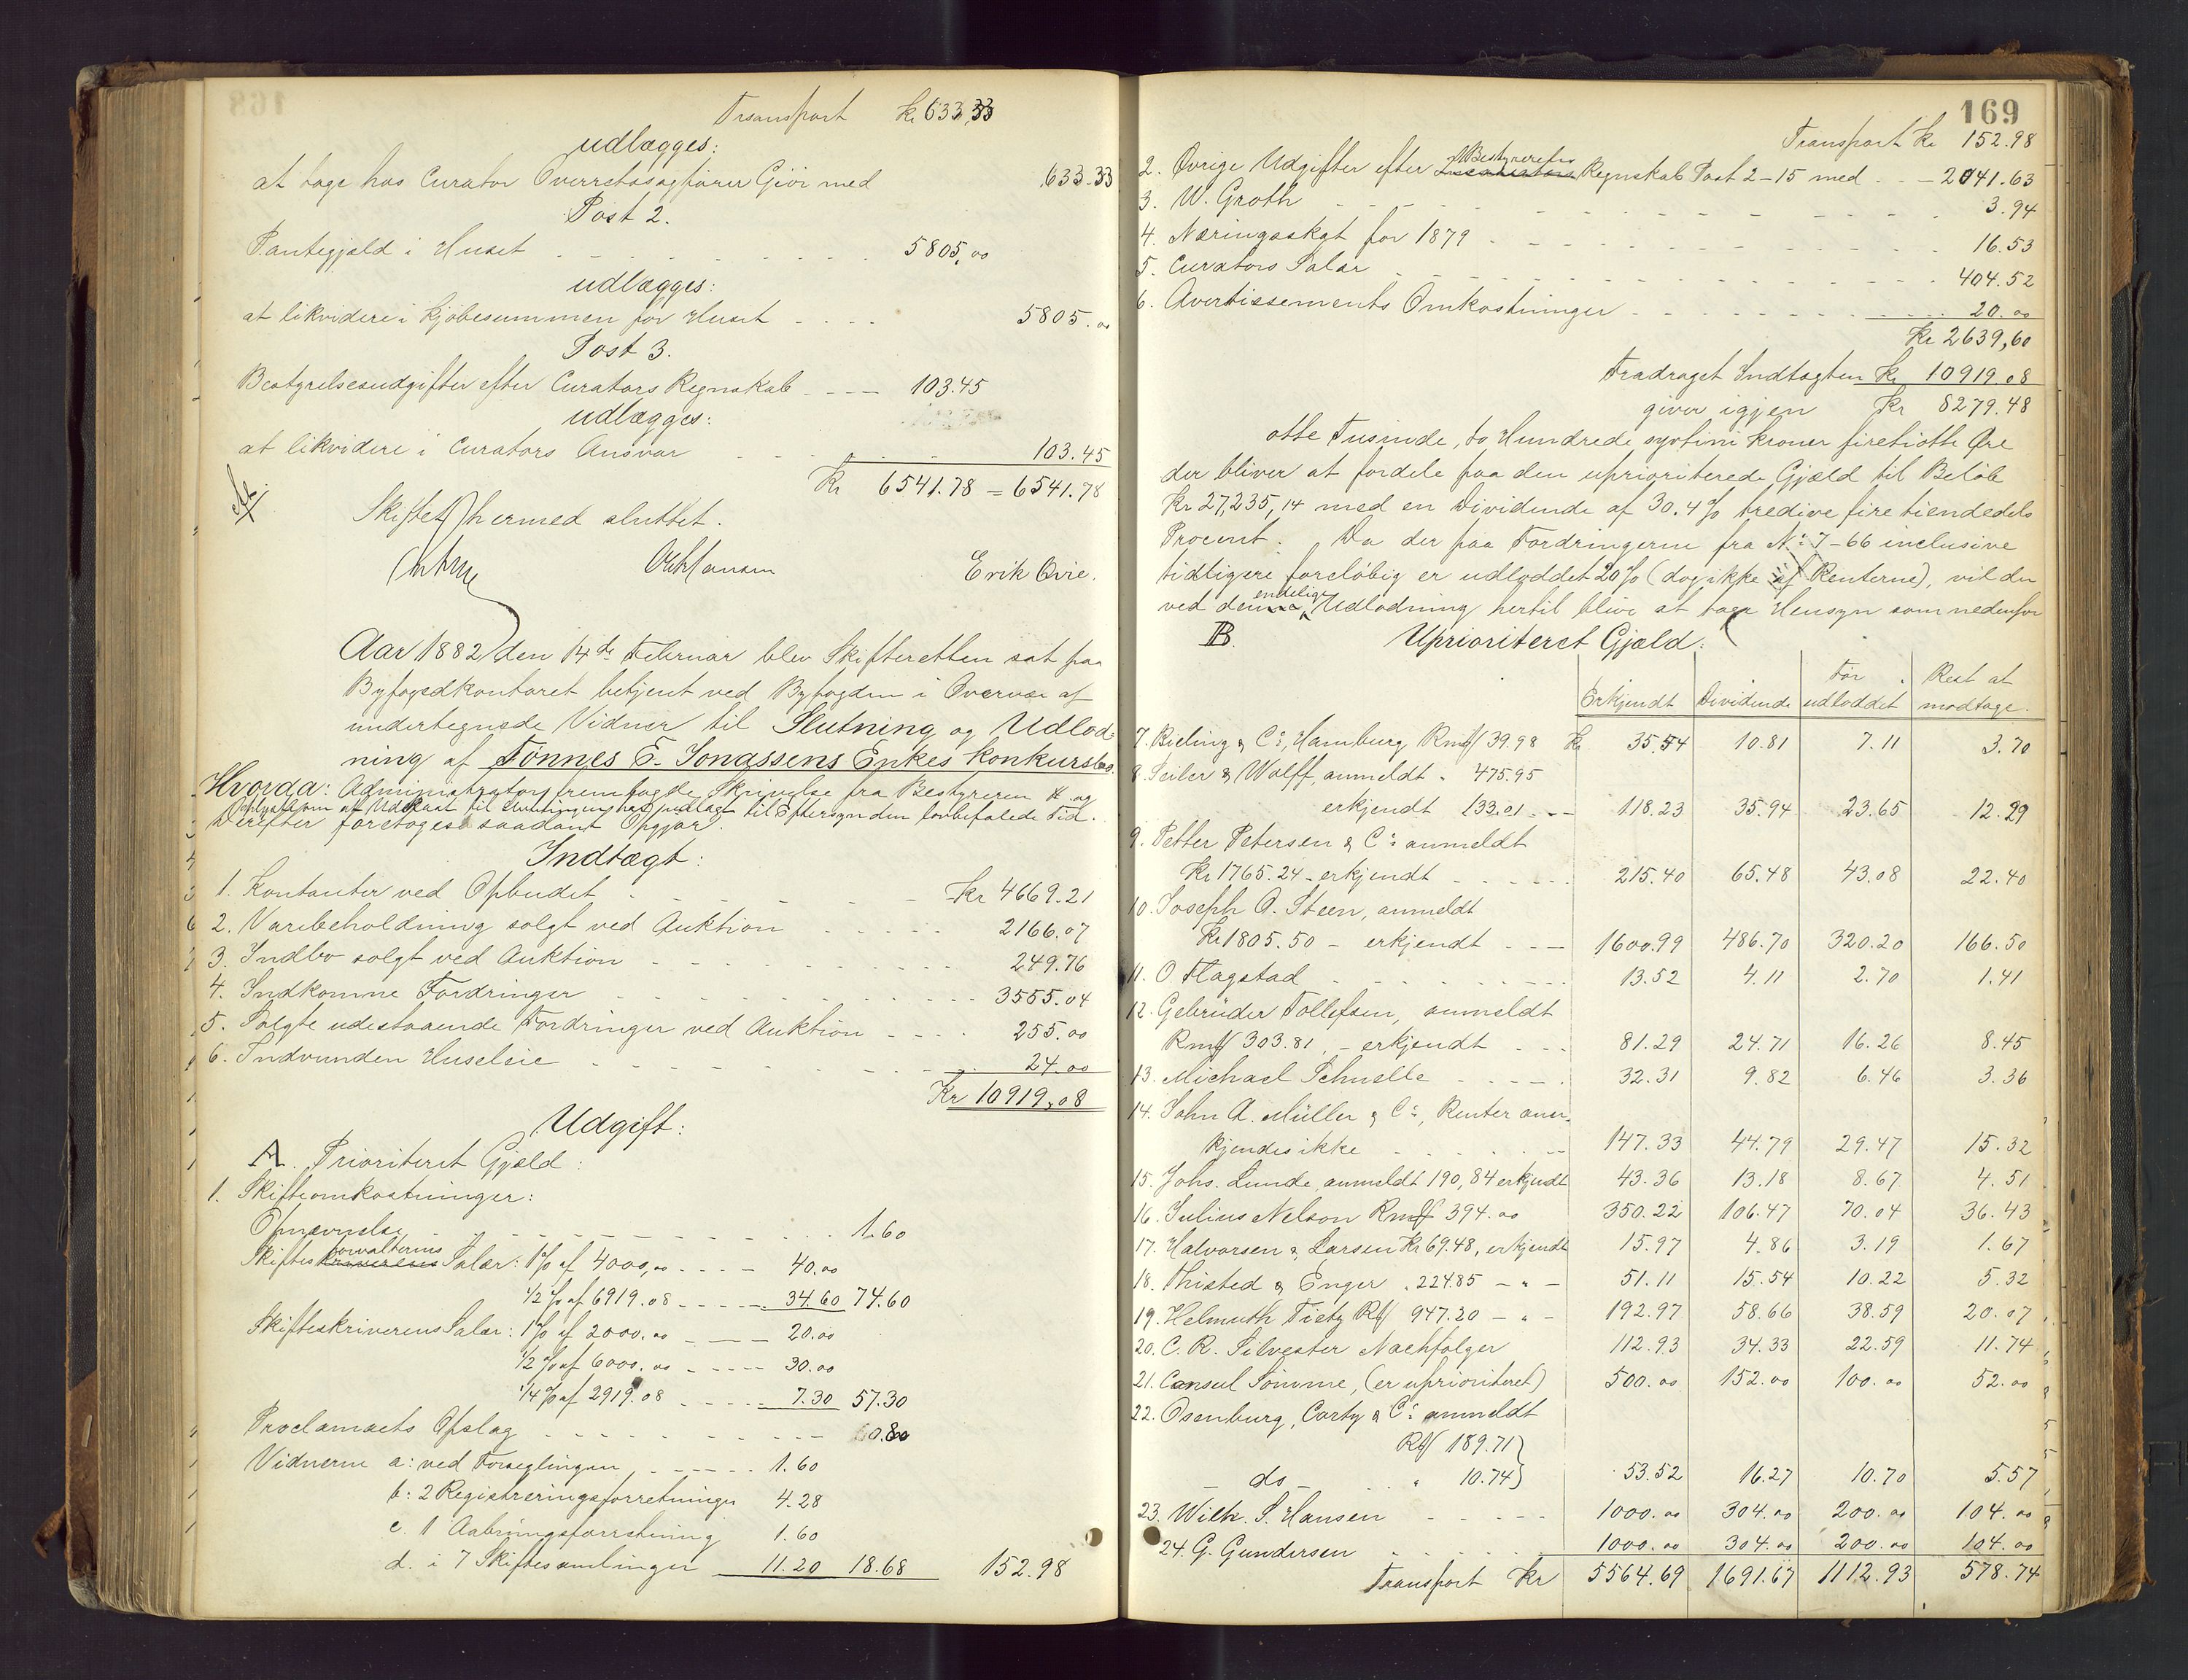 Transport Kr 633,33
udlægges:
at tage hos Curator Overretssagfører Giör med 633.33
Post 2.
Pantegjæld i Huset 5805,00
udlægges:
at likvidere i Kjöbesummen for Huset 5805.00
Post 3.
Bestyrelsesudgifter efter Curators Regnskab 103.45
udlægges:
at likvidere i Curators Ansvar 103.45
Kr 6541.78 = 6541.78
Skiftet hermed sluttet.
Erik Qvie.
Aar 1882 den 14de Februar blev Skifteretten sat paa
Byfogedkontoret betjent ved Byfogden i Overvær af
undertegnede Vidner til Slutning og Udlod-
ning af Tönnes E. Jonassens Enkes Konkursbo.
Hvorda: Administrator fremlagde Skrivelse fra Bestyreren og
Oplyste om at Udkast til Slutningen har udlagt til Eftersyn den lovbefalede Tid.
Derefter foretoges saadant Opgjør.
Indtægt:
1. Kontanter ved Opbudet Kr 4669.21
2. Varebeholdning solgt ved Auktion 2166.07
3. Indbo solgt ved Auktion 249.76
4. Indkomne Fordringer 3555.04
5. Solgte udestaaende Fordringer ved Auktion 255.00
6. Indvunden Huseleie 24.00
Kr 10919,08
Udgift:
A. Prioriteret Gjæld:
1. Skifteomkostninger:
Opnævnelse 1.60
Skifteforvalterens Salær: 1% af 4000,00 40.00
1/2 % af 6919.08 34.60 74.60
Skifteskriverens Salær: 1% af 2000.00 20.00
1/2 % af 6000.00 30.00
1/4 % af 2919.08 7.30 57.30
Proclamaets Opslag 0.80
Vidnerne a: ved Forseglingen 1.60
b: 2 Registreringsforretninger 4.28
c. 1 Aabningsforretning 1.60
d. i 7 Skiftesamlinger 11.20 18.68 152.98
169
Transport Kr 152.98
2. Övrige Udgifter efter Bestyrerens Regnskab Post 2-15 med 2041.63
3. W. Groth 3.94
4. Næringsskat for 1879 16.53
5. Curators Salær 404.52
6. Avertissements Omkostninger 20.00
Kr 2639,60
Fradraget Indtægten Kr 10919.08
giver igjen Kr 8279.48
otte Tusinde, to Hundrede syvtini Kroner firetiotte Øre
der bliver at fordele paa den uprioriterede Gjæld til Beløb
Kr 27,235,14 med en Dividende af 30.4% tredive fire tiendedels
Procent. Da der paa Fordringerne fra No 7-66 inclusive
tidligere foreløbig er udloddet 20% (dog ikke af Renterne), vil der
ved denne endelige Udlodning hertil blive at tage Hensyn som nedenfor
B. Uprioriteret Gjæld:
Erkjendt Dividende För udloddet Rest at modtage.
7. Bieling & Co, Hamburg Rmf 39.98 Kr 35.54 10.81 7.11 3.70
8. Seiler & Wolff, anmeldt " 475.95
erkjendt 133.01 118.23 35.94 23.65 12.29
9. Petter Petersen & Co anmeldt
Kr 1765.24 - erkjendt 215.40 65.48 43.08 22.40
10. Joseph A. Steen, anmeldt
Kr 1805.50 - erkjendt 1600.99 486.70 320.20 166.50
11. O Flagstad 13.52 4.11 2.70 1.41
12. Gebrüder Tollefsen, anmeldt
Rmf 303.81, - erkjendt 81.29 24.71 16.26 8.45
13. Michael Schuelle 32.31 9.82 6.46 3.36
14. John A. Müller & Co, Renter aner-
kjendes ikke 147.33 44.79 29.47 15.32
15. Johs. Lunde, anmeldt 190,84 erkjendt 43.36 13.18 8.67 4.51
16. Julius Nelson Rmf 394.00 350.22 106.47 70.04 36.43
17. Halvorsen & Larsen Kr 69.48, erkjendt 15.97 4.86 3.19 1.67
18. Thisted & Enger " 224.85 - " - 51.11 15.54 10.22 5.32
19. Helmuth Tietz Rf 947.20 - " - 192.97 58.66 38.59 20.07
20. C. R. Silvester Nachfolger 112.93 34.33 22.59 11.74
21. Consul Sömme, (er uprioriteret) 500.00 152.00 100.00 52.00
22. Osenburg, Carty & Co anmeldt
Rf 189.71
do " 10.74 53.52 16.27 10.70 5.57
23. Wilh. S. Hansen 1000.00 304.00 200.00 104.00
24. G. Gundersen 1000.00 304.00 200.00 104.00
Transport Kr 5564.69 1691.67 1112.93 578.74